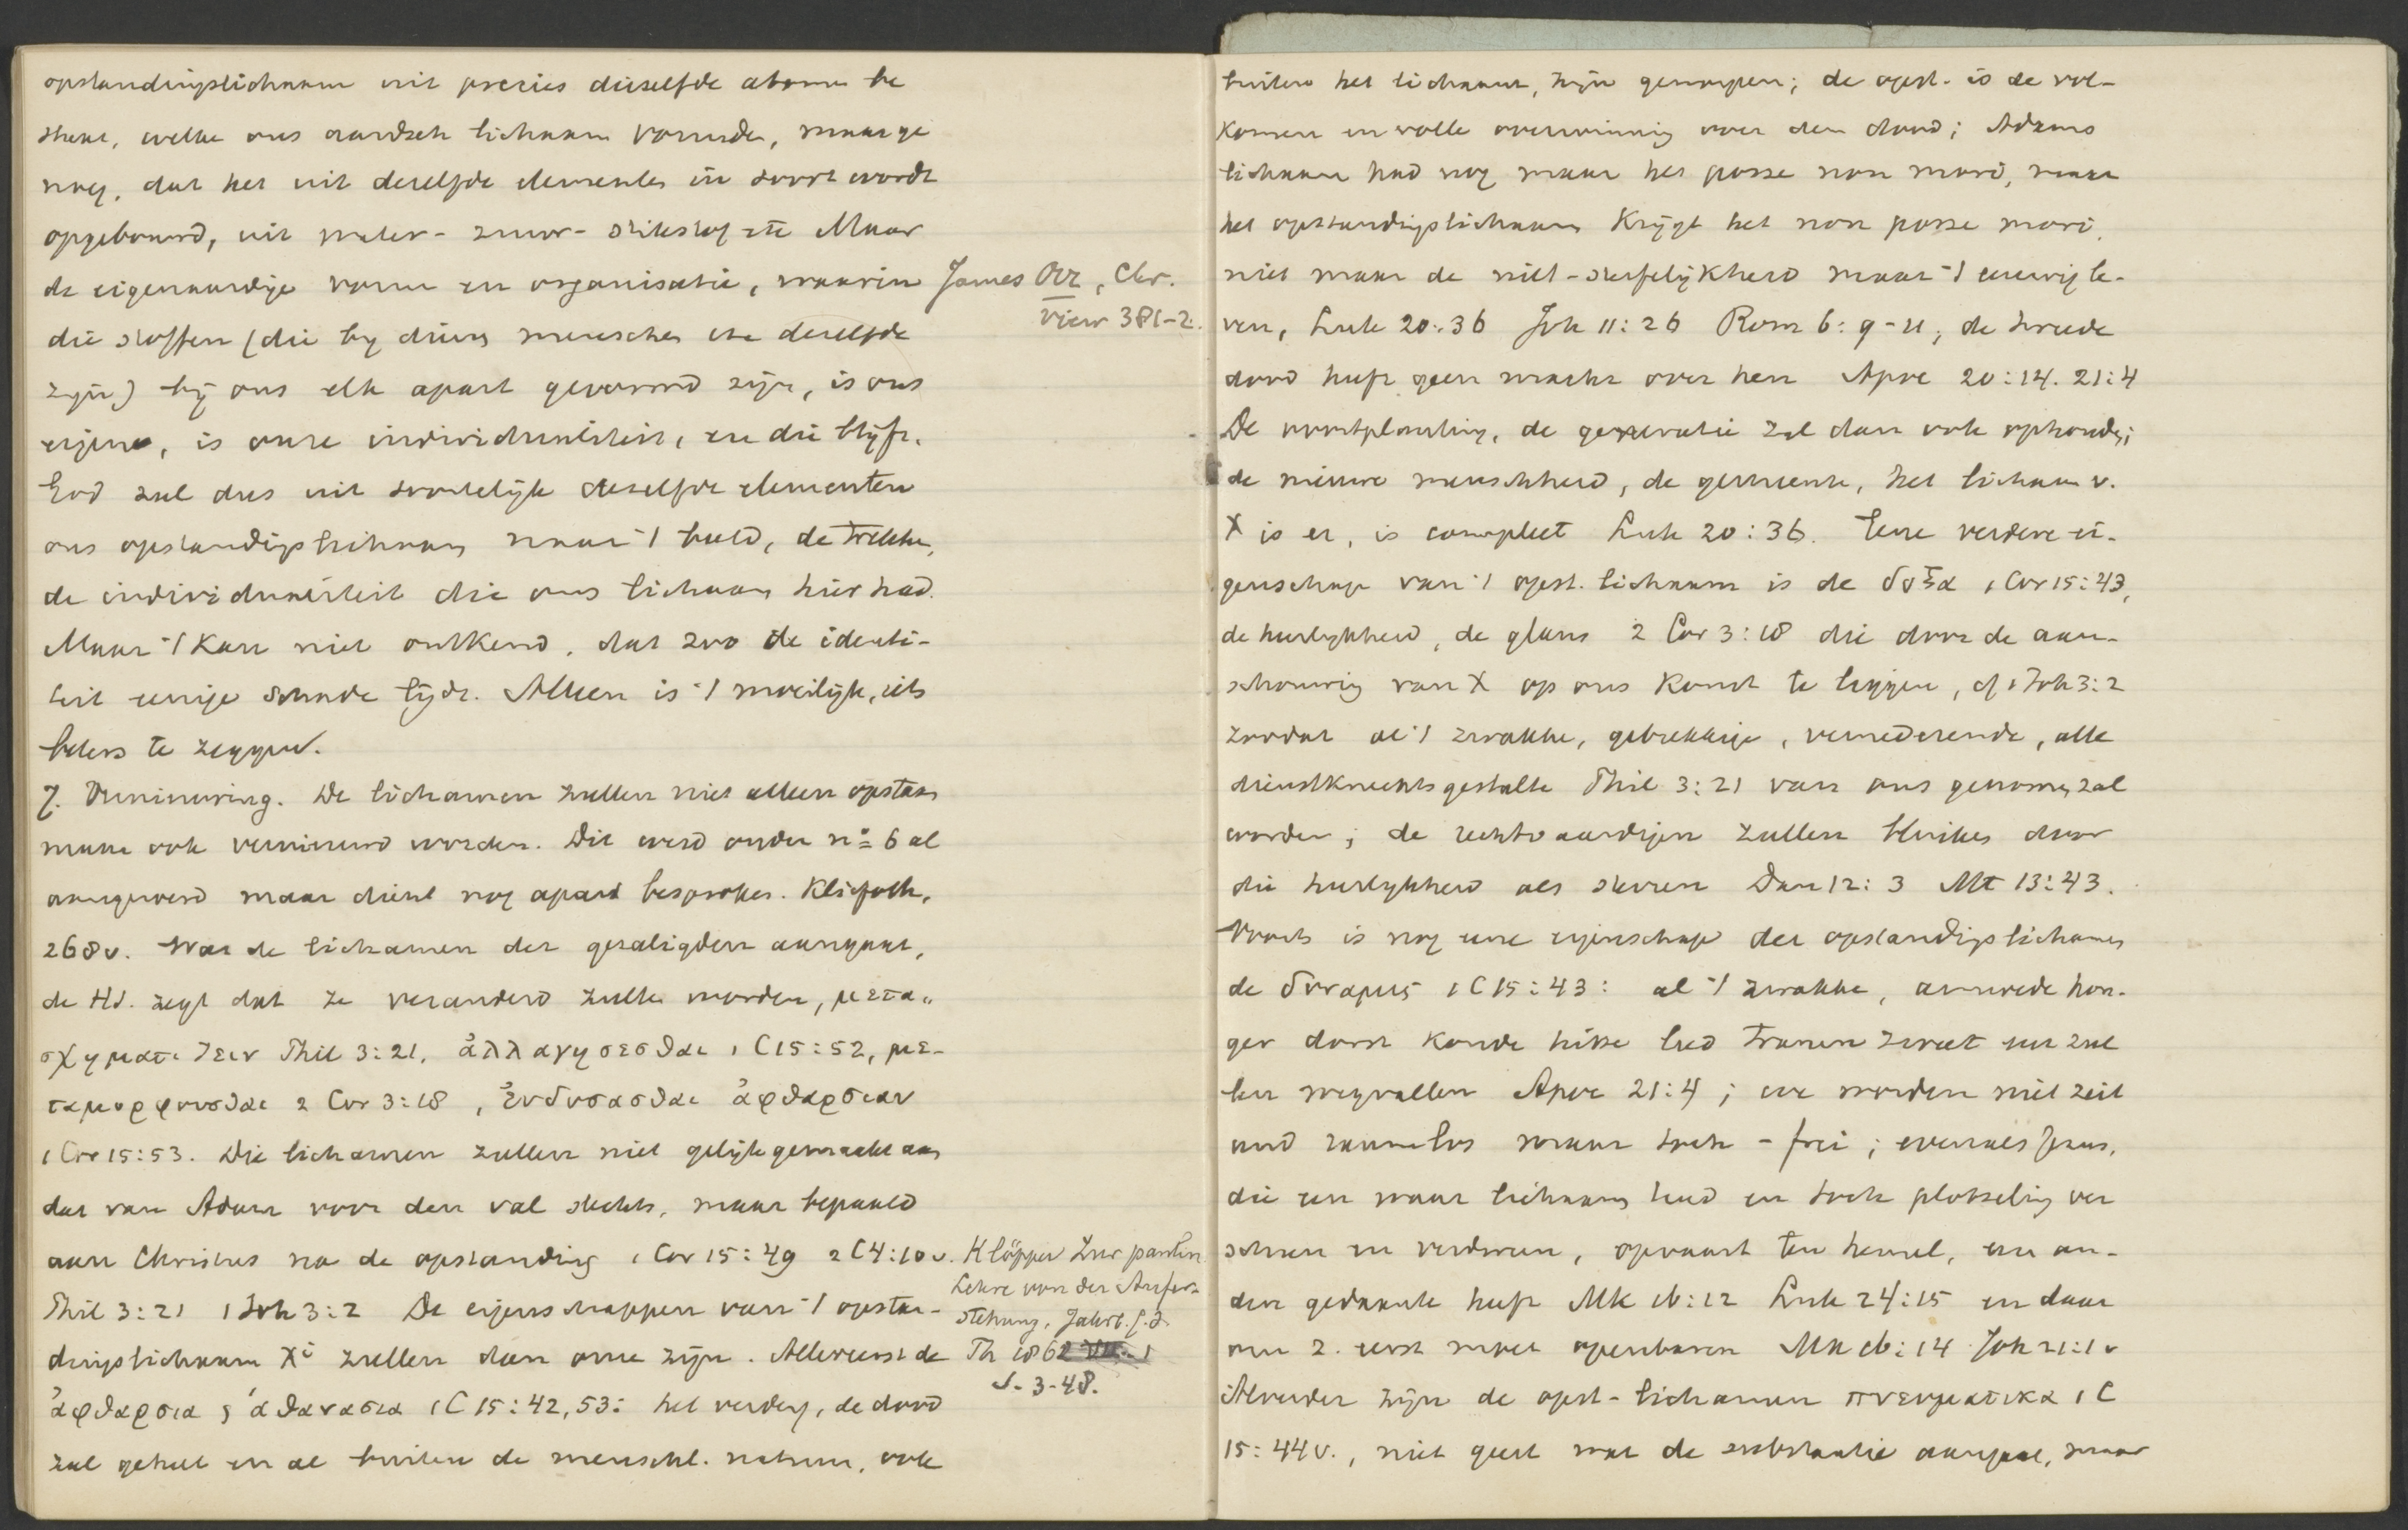 opstandingslichaam uit precies dieselfde atomen be
staat, welke ons aardsch lichaam vormden, maar ge
noeg, dat het uit deselfde elementen in soort wordt
opgebouwd, uit water- zuur- stikstof etc Maar
de eigenaardige vorm en organisatie, waarin
die stoffen (die by divers menschen de deselfde
zijn) bij ons elk apart gevormd zijn, is ons
eigene, is onze individualiteit, en die blijft.
God zal dus uit soortelijk deselfde elementen
ons opstandingslichaam naar 't beeld, de trekken,
de individualiteit die ons lichaam hier had.
Maar 't kan niet ontkend, dat zoo de identi-
teit eenige schade lijdt. Alleen is 't moeilijk, iets
beters te zeggen.
7. Vernieuwing. De lichamen zullen niet alleen opstaan
maar ook vernieuwd worden. Dit werd onder no 6 al
aangevoerd maar dient nog apart besproken. Kliefoth,
268v. Wat de lichamen der gezaligden aangaat,
de HS. zegt dat ze veranderd zullen worden, μετα-
σχηματιζειν Phil 3:21, ἀλλαγησεσθαι 1 C 15:52, με-
ταμορφουσθαι 2 Cor 3:18, ἐνδυσασθαι ἀφθαρσιαν
1 Cor 15:53. Die lichamen zullen niet gelijk gemaakt aan
dat van Adam voor den val slechts, maar bepaald
aan Christus na de opstanding 1 Cor 15:49 2 C 4:10v.
Phil 3:21 1 Joh 3:2 De eigenschappen van 't opstan-
dingslichaam Xi zullen dan onze zijn. Allereerst de
ἀφθαρσια ς ἀθανασια 1 C 15:42, 53: het verderf, de dood
zal geheel en al buiten de menschl. natuur, ook
James Orr, Chr.
View 381-2.
Klöpper Zur paulin
Lehre von der Aufer-
stehung, Jahrb. f. d.
Th 1862
S. 3-48.
buiten het lichaam, zijn geworpen; de opst. is de vol-
komen en volle overwinning over den dood; Adams
lichaam had nog maar het posse non mori, maar
het opstandingslichaam krijgt het non posse mori,
niet maar de niet-sterfelijkheid maar 't eeuwig le-
ven, Luk 20:36 Joh 11:26 Rom 6:9-11, de tweede
dood heeft geen macht over hen Apoc 20:14. 21:4
De voortplanting, de generatie zal dan ook ophouden;
de nieuwe menschheid, de gemeente, het lichaam v.
X is er, is compleet Luk 20:36. Eene verdere ei-
genschap van 't opst. lichaam is de δοξα 1 Cor 15:43,
de heerlykheid, de glans 2 Cor 3:18 die door de aan-
schouwing van X op ons komt te liggen, cf 1 Joh 3:2
zoodat al 't zwakke, gebrekkige, vernederende, alle
dienstknechtsgestalte Phil 3:21 van ons genomen zal
worden; de rechtvaardigen zullen blinken door
die heerlykheid als sterren Dan 12:3 Mt 13:43.
Voorts is nog eene eigenschap der opstandingslichamen
de δυναμις 1 C 15:43: al 't zwakke, armoede hon-
ger dorst koude hitte leed tranen zweet enz zul
len wegvallen Apoc 21:4; we worden niet zeit
und raumlos maar toch -frei; evenals Jezus,
die een waar lichaam had en toch plotseling ver
scheen en verdween, opvaart ten hemel, een an-
der gedaante heeft Mk 16:12 Luk 24:15 en daar
om z. eerst moet openbaren Mk 16:14 Joh 21:1v
Alverder zijn de opst-lichamen πνευματικα 1 C
15:44v., niet geest wat de substantie aangaat, maar